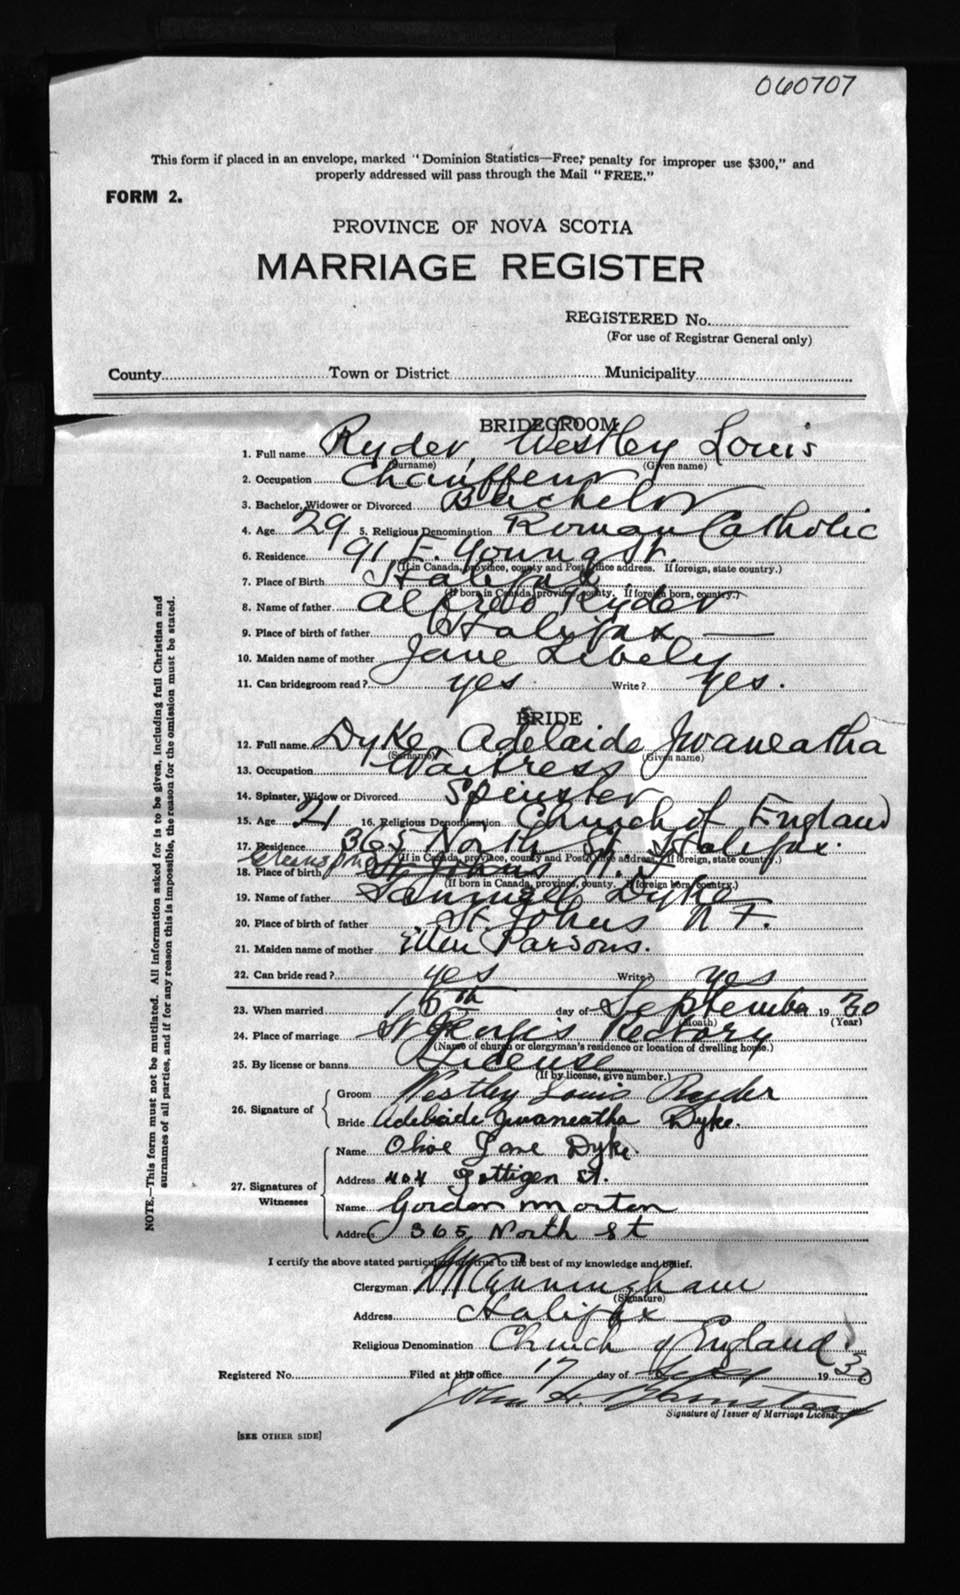 060707
This form if placed in an envelope, marked "Dominion Statistics—Free," penalty for improper use $300," and
properly addressed will pass through the Mail "FREE."
FORM 2.
PROVINCE OF NOVA SCOTIA
MARRIAGE REGISTER
REGISTERED No.
(For use of Registrar General only)
County Town or District Municipality
BRIDEGROOM
1. Full name Ryder, Westley Louis
(Surname) (Given name)
2. Occupation Chauffeur
3. Bachelor, Widower or Divorced Bachelor
4. Age 29 5. Religious Denomination Roman Catholic
6. Residence 91 E. Young St.
(If in Canada, province, county and Post Office address. If foreign, state country.)
7. Place of Birth Halifax
(If born in Canada, province, county. If foreign born, country.)
8. Name of father Alfred Ryder
9. Place of birth of father Halifax —
10. Maiden name of mother Jane Lively
11. Can bridegroom read? yes Write? yes.
BRIDE
12. Full name Dyke, Adelaide Jwaneatha
(Surname) (Given name)
13. Occupation Waitress
14. Spinster, Widow or Divorced Spinster
15. Age 21 16. Religious Denomination Church of England
17. Residence 365 North St. Halifax.
(If in Canada, province, county and Post Office address. If foreign, state country.)
18. Place of birth St Johns N.F.
(If born in Canada, province, county. If foreign born, country.)
19. Name of father Samuel Dyke
20. Place of birth of father St. Johns N F.
21. Maiden name of mother Ellen Parsons.
22. Can bride read? yes Write? yes
23. When married 16th day of September 1930
(Month) (Year)
24. Place of marriage St Georges Rectory
(Name of church or clergyman's residence or location of dwelling house.)
25. By license or banns License
(If by license, give number.)
26. Signature of
Groom Westley Louis Ryder
Bride Adelaide Jwaneatha Dyke.
27. Signatures of Witnesses
Name Olive Jane Dyke.
Address 404 Gottigen St.
Name Gordon Morton
Address 365 North St
I certify the above stated particulars are true to the best of my knowledge and belief.
Clergyman Cunningham
(Signature)
Address Halifax
Religious Denomination Church of England
Registered No. Filed at this office 17 day of Sept 1930
John H.
Signature of Issuer of Marriage Licenses
[SEE OTHER SIDE]
NOTE.—This form must not be mutilated. All information asked for is to be given, including full Christian and
surnames of all parties, and if for any reason this is impossible, the reason for the omission must be stated.